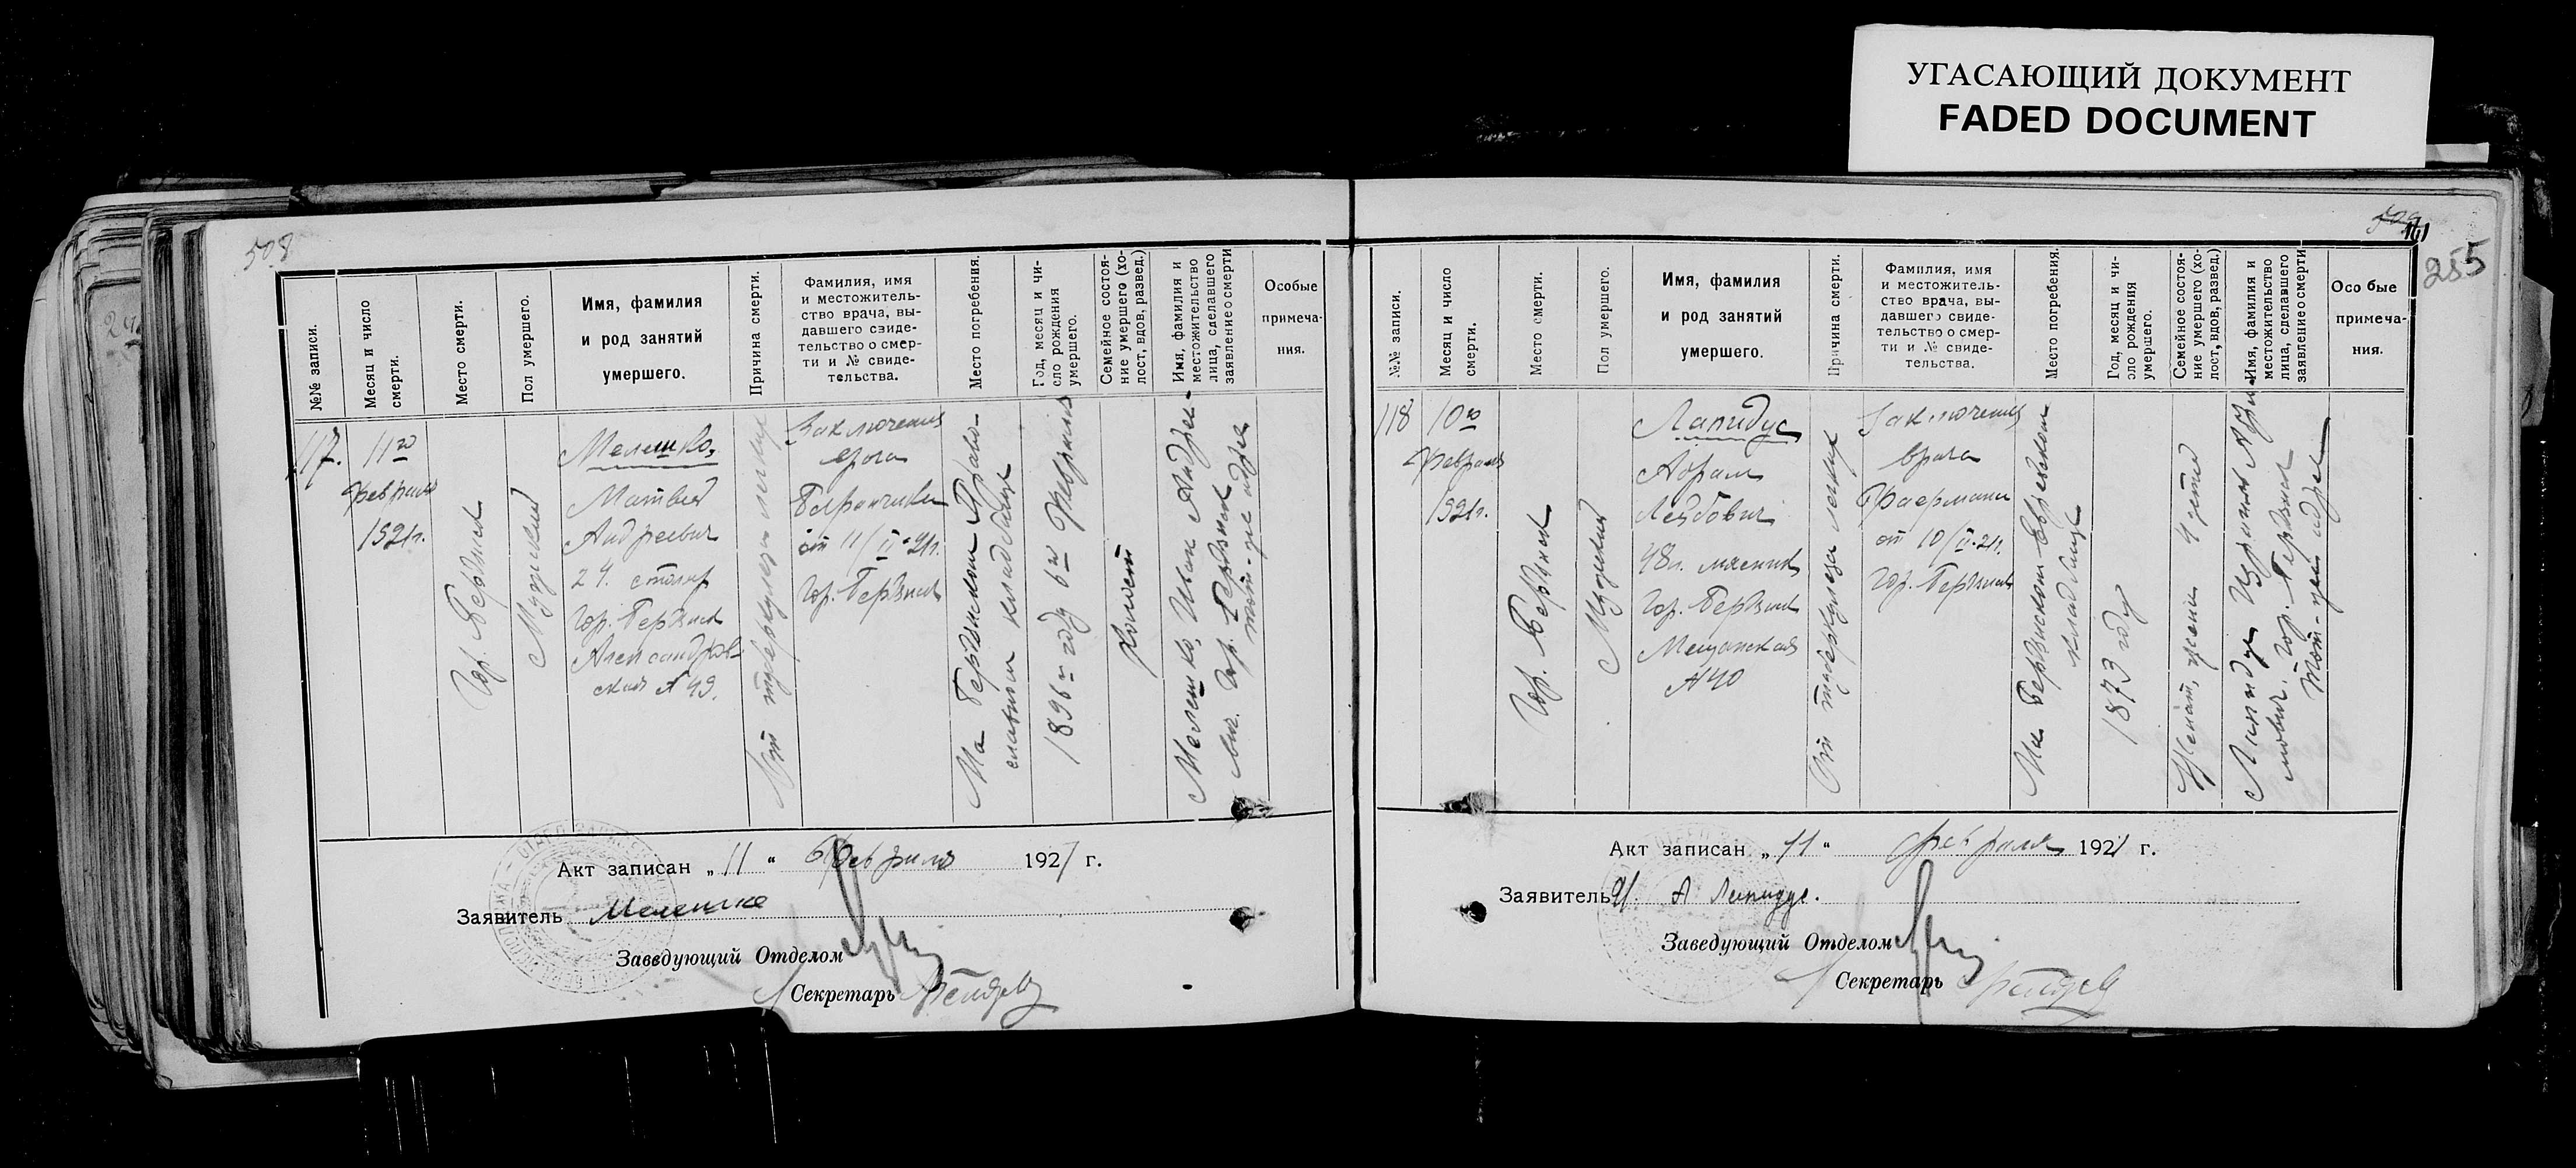 УГАСАЮЩИЙ ДОКУМЕНТ
FADED DOCUMENT
508
№№ записи.
Месяц и число
смерти.
Место смерти.
Пол умершего.
Имя, фамилия
и род занятий
умершего.
Причина смерти.
Фамилия, имя
и местожитель-
ство врача, вы-
давшего свиде-
тельство о смер-
ти и № свиде-
тельства.
Место погребения.
Год, месяц и чи-
сло рождения
умершего.
Семейное состоя-
ние умершего (хо-
лост, вдов, развед.)
Имя, фамилия и
местожительство
лица, сделавшего
заявление о смерти
Особые
примеча-
ния.
117.
11го
февраля
1921г.
Гор. Бердянск
Мужский
Мелешко,
Матвей
Андреевич
24. столяр
гор. Бердянск
Александров-
ская № 49.
От туберкулеза легких
Заключения
врача
от 11/II-21г.
гор. Бердянск
На Бердянском Право-
славном кладбище
1896м году 6го февраля
Холост
Мелешко, Иван Андрее-
вич. Гор. Бердянск
тот-же адрес
Акт записан „11“ Февраля 1921 г.
Заявитель Мелешко
Заведующий Отделом
Секретарь
255
№№ записи.
Месяц и число
смерти.
Место смерти.
Пол умершего.
Имя, фамилия
и род занятий
умершего.
Причина смерти.
Фамилия, имя
и местожитель-
ство врача, вы-
давшего свиде-
тельство о смер-
ти и № свиде-
тельства.
Место погребения.
Год, месяц и чи-
сло рождения
умершего.
Семейное состоя-
ние умершего (хо-
лост, вдов, развед.)
Имя, фамилия и
местожительство
лица, сделавшего
заявление о смерти
Особые
примеча-
ния.
118
10го
февраля
1921г.
Гор. Бердянск
Мужский
Лапидус
Абрам
Лейбович
48л. мясник
гор. Бердянск
Мещанская
№ 40
От туберкулеза легких
Заключения
врача
Файермана
от 10/II-21г.
гор. Бердянск
На Бердянском Еврейском
кладбище
1873 году
Женат, жена 4 детей
Лапидус
гор. Бердянск
тот-же адрес
Акт записан „11“ февраля 1921 г.
Заявитель А Лапидус.
Заведующий Отделом
Секретарь